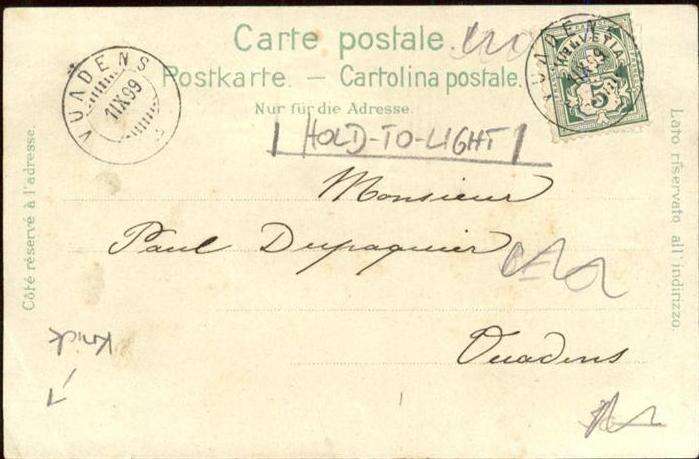 Carte postale.
Postkarte. — Cartolina postale.
Nur für die Adresse.
VUADENS
1 IX 99
VUADENS
HELVETIA
5
HOLD-TO-LIGHT
Côté réservé à l'adresse.
Lato riservato all'indirizzo.
Monsieur
Paul Dupaquier
Vuadens
Knick